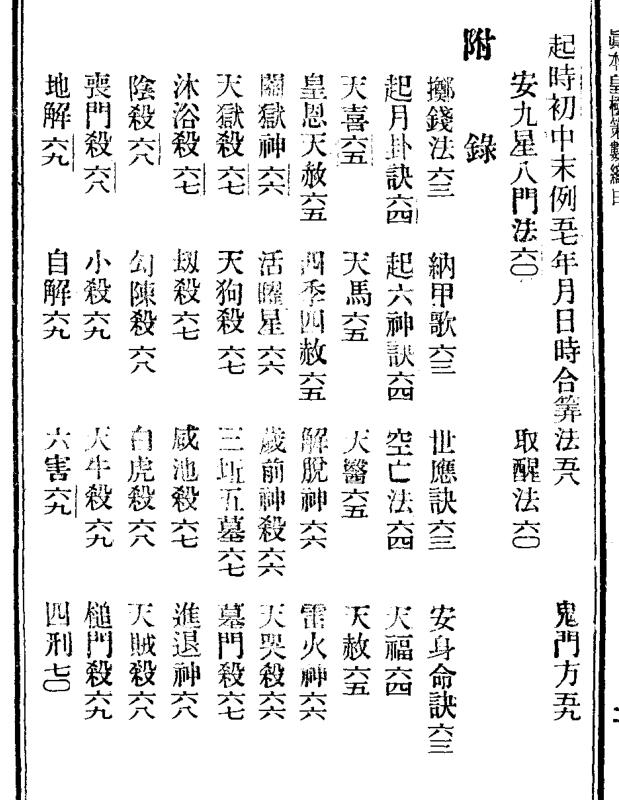 眞本皇極策數總目
起時初中末例五七　年月日時合筭法五八　鬼門方五九
安九星八門法六〇　取醒法六〇
附錄
擲錢法六三　納甲歌六三　世應訣六三　安身命訣六三
起月卦訣六四　起六神訣六四　空亡法六四　天福六四
天喜六五　天馬六五　天醫六五　天赦六五
皇恩天赦六五　四季四赦六五　解脫神六六　雷火神六六
關獄神六六　活曜星六六　歲前神殺六六　天哭殺六六
天獄殺六七　天狗殺六七　三坵五墓六七　墓門殺六七
沐浴殺六七　刼殺六七　咸池殺六七　進退神六八
陰殺六八　勾陳殺六八　白虎殺六八　天賊殺六八
喪門殺六八　小殺六九　大牛殺六九　槌門殺六九
地解六九　自解六九　六害六九　四刑七〇